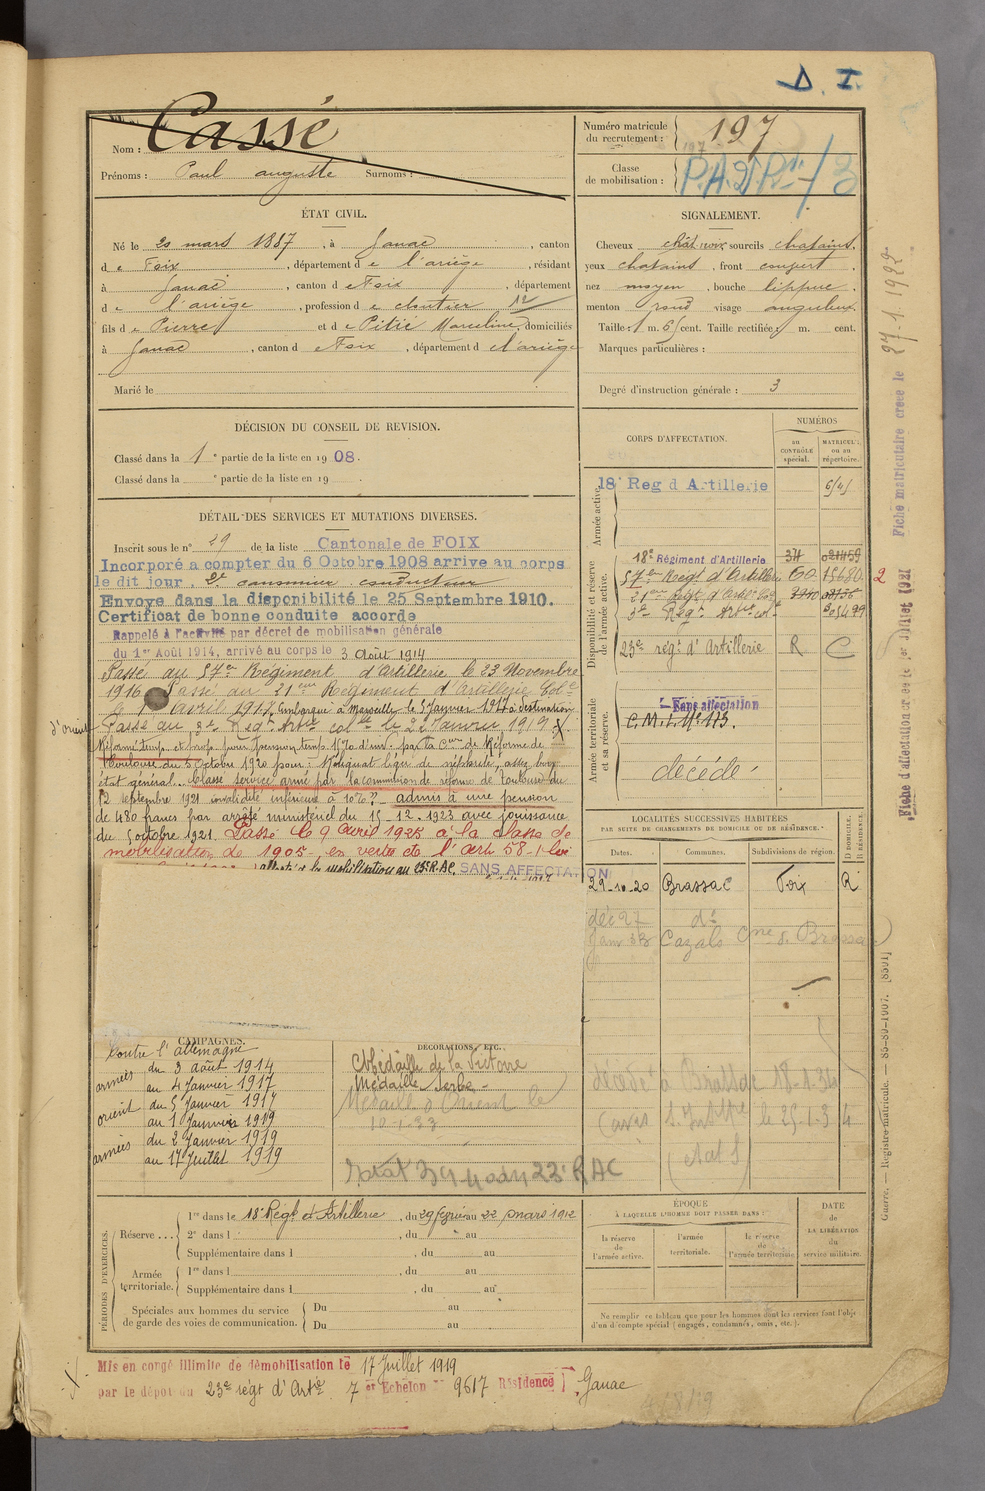 D. I.
Nom : Cassé
Prénoms : Paul auguste Surnoms :
Numéro matricule du recrutement : 197
Classe de mobilisation :
ÉTAT CIVIL.
Né le 20 mars 1887, à Ganac, canton
de Foix, département de l'ariège, résidant
à Ganac, canton de Foix, département
de l'ariège, profession de cloutier
fils de Pierre et de Pitié Marceline, domiciliés
à Ganac, canton de Foix, département de l'ariège
Marié le
SIGNALEMENT.
Cheveux chât. noir sourcils chatains,
yeux chatains, front couvert,
nez moyen, bouche lippue,
menton rond visage anguleux
Taille : 1 m. 61 cent. Taille rectifiée : m. cent.
Marques particulières :
Degré d'instruction générale : 3
DÉCISION DU CONSEIL DE REVISION.
Classé dans la 1e partie de la liste en 1908.
Classé dans la e partie de la liste en 19
DÉTAIL DES SERVICES ET MUTATIONS DIVERSES.
Inscrit sous le n° 29 de la liste Cantonale de FOIX
Incorporé a compter du 6 Octobre 1908 arrive au corps
le dit jour, 2e canonnier conducteur
Envoye dans la disponibilité le 25 Septembre 1910.
Certificat de bonne conduite accorde
Rappelé à l'activité par décret de mobilisation générale
du 1er Août 1914, arrivé au corps le 3 Août 1914
Passé au 57e Régiment d'Artillerie le 23 Novembre
1916 Passé au 21e Régiment d'Artillerie Cole
le 1 avril 1917, Embarqué à Marseille le 5 Janvier 1917 à destination
d'orient
Passé au 3e Regt Artie colle le 22 Janvier 1919
Réformé temp. et prop. pour pension temp 10% d'inv. par la Con de Réforme de
Toulouse du 5 Octobre 1920 pour : Reliquat léger de néphrite, assez bon
état général. Classé service armé par la commission de réforme de Toulouse du
12 septembre 1921 invalidité inférieure à 10% - admis à une pension
de 480 francs par arrêté ministériel du 15-12-1923 avec jouissance
du 5 octobre 1921. Passé le 9 Avril 1925 à la classe de
mobilisation de 1905 en vertu de l'art. 58 loi
affecté à la mobilisation au 23e R.A.C. SANS AFFECTATION
CORPS D'AFFECTATION.
NUMÉROS
au CONTRÔLE spécial.
MATRICULE ou au répertoire.
Armée active.
18e Reg d Artillerie
Disponibilité et réserve de l'armée active.
18e Régiment d'Artillerie 34
57e Regt d'Artillerie 60 15680
21e Régt d'Arte Cole
3e Regt Artie cole
23e régt d'Artillerie R C
Armée territoriale et sa réserve.
Sans affectation
C.M.I. N° 173.
décédé
LOCALITÉS SUCCESSIVES HABITÉES
PAR SUITE DE CHANGEMENTS DE DOMICILE OU DE RÉSIDENCE.
Dates. Communes. Subdivisions de région. D DOMICILE. R RÉSIDENCE.
29-10-20 Brassac Foix R
déc 27 do
Cazals Cne de Brassac
décédé à
CAMPAGNES.
Contre l'allemagne
armées du 3 août 1914
au 4 Janvier 1917
orient du 5 Janvier 1917
au 1 Janvier 1919
armées du 2 Janvier 1919
au 17 Juillet 1919
DÉCORATIONS, ETC.
Médaille de la Victoire
Médaille Serbe
Médaille d'Orient le
10-1-33
PÉRIODES D'EXERCICES.
Réserve ... 1re dans le 18e Régt d'Artillerie, du 29 février au 22 mars 1912
2e dans l , du au
Supplémentaire dans l , du au
Armée territoriale. 1re dans l , du au
Supplémentaire dans l , du au
Spéciales aux hommes du service de garde des voies de communication. Du au
Du au
ÉPOQUE
À LAQUELLE L'HOMME DOIT PASSER DANS :
la réserve de l'armée active.
l'armée territoriale.
la réserve de l'armée territoriale
DATE de LA LIBÉRATION du service militaire.
Ne remplir ce tableau que pour les hommes dont les services font l'objet
d'un décompte spécial (engagés, condamnés, omis, etc.).
Mis en congé illimité de démobilisation le 17 Juillet 1919
par le dépôt du 23e régt d'Artie 7e Echelon n° 9617 Résidence Ganac
Fiche matriculaire créée le 27.1.1922
Fiche d'affectation créée le 1er Juillet 1921
Guerre. — Registre matricule.